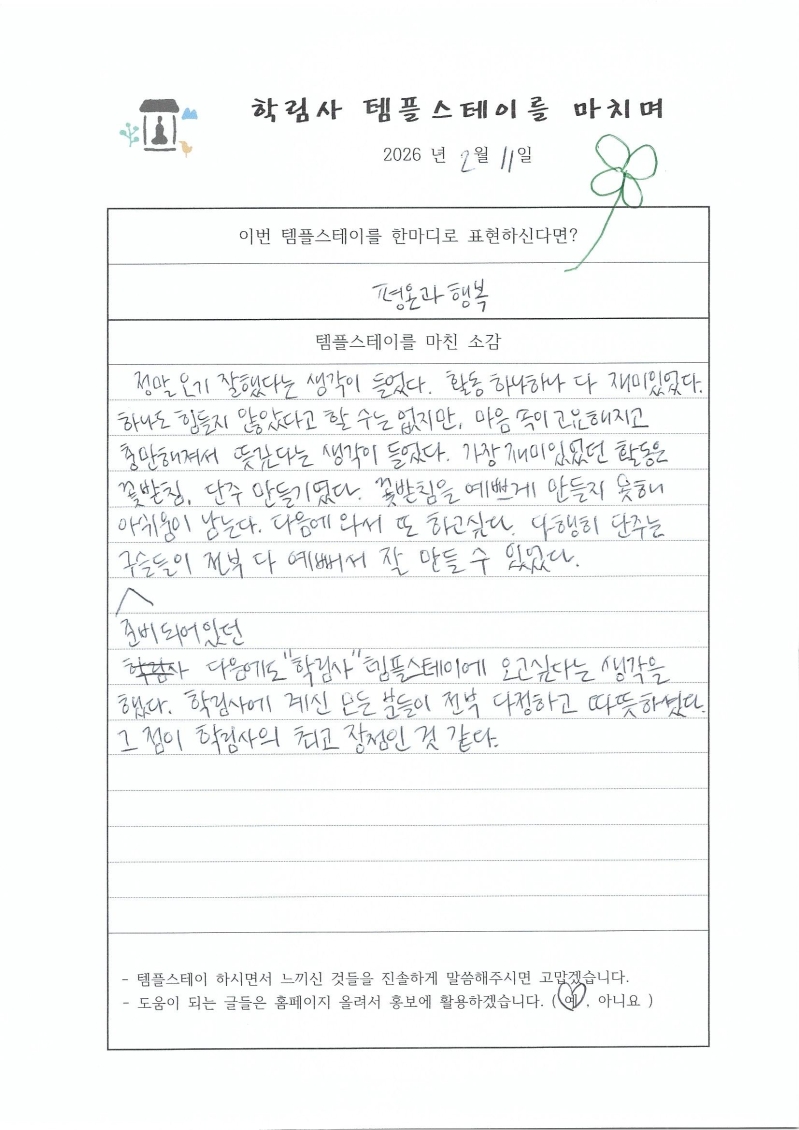 학림사 템플스테이를 마치며
2026 년 2월 11일
이번 템플스테이를 한마디로 표현하신다면?
평온과 행복
템플스테이를 마친 소감
정말 오기 잘했다는 생각이 들었다. 활동 하나하나 다 재미있었다.
하나도 힘들지 않았다고 할 수는 없지만, 마음 속이 고요해지고
충만해져서 뜻깊다는 생각이 들었다. 가장 재미있었던 활동은
꽃받침, 단주 만들기였다. 꽃받침을 예쁘게 만들지 못해
아쉬움이 남는다. 다음에 와서 또 하고싶다. 다행히 단주는
구슬들이 전부 다 예뻐서 잘 만들 수 있었다.
준비되어있던
학림사 다음에도 "학림사" 템플스테이에 오고싶다는 생각을
했다. 학림사에 계신 모든 분들이 전부 다정하고 따뜻하셨다.
그 점이 학림사의 최고 장점인 것 같다.
- 템플스테이 하시면서 느끼신 것들을 진솔하게 말씀해주시면 고맙겠습니다.
- 도움이 되는 글들은 홈페이지 올려서 홍보에 활용하겠습니다. ( 예 , 아니요 )